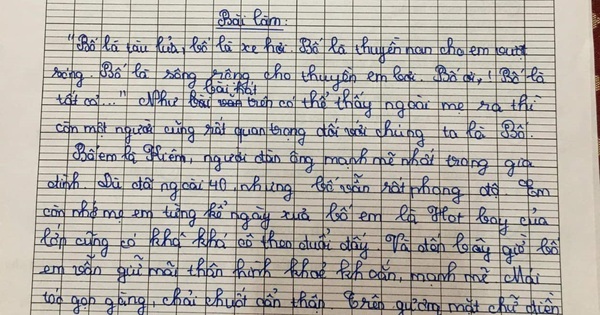 Bài làm:
"Bố là tàu lửa, bố là xe hơi. Bố là thuyền nan cho em vượt
sóng. Bố là sông rộng cho thuyền em bơi. Bố ơi, ! Bố là
bài hát
tất cả..." Như bài văn trên có thể thấy ngoài mẹ ra thì
còn một người cũng rất quan trọng đối với chúng ta là Bố.
Bố em là Hiêm, người đàn ông mạnh mẽ nhất trong gia
đình. Dù đã ngoài 40, nhưng bố vẫn rất phong độ. Em
còn nhớ mẹ em từng kể ngày xưa bố em là Hot boy của
lớp cũng có khổ khá cô theo đuổi đấy. Và đến bây giờ bố
em vẫn giữ mãi thân hình khoẻ khoắn, mạnh mẽ. Mái
tóc gọn gàng, chải chuốt cẩn thận. Trên gương mặt chữ điền